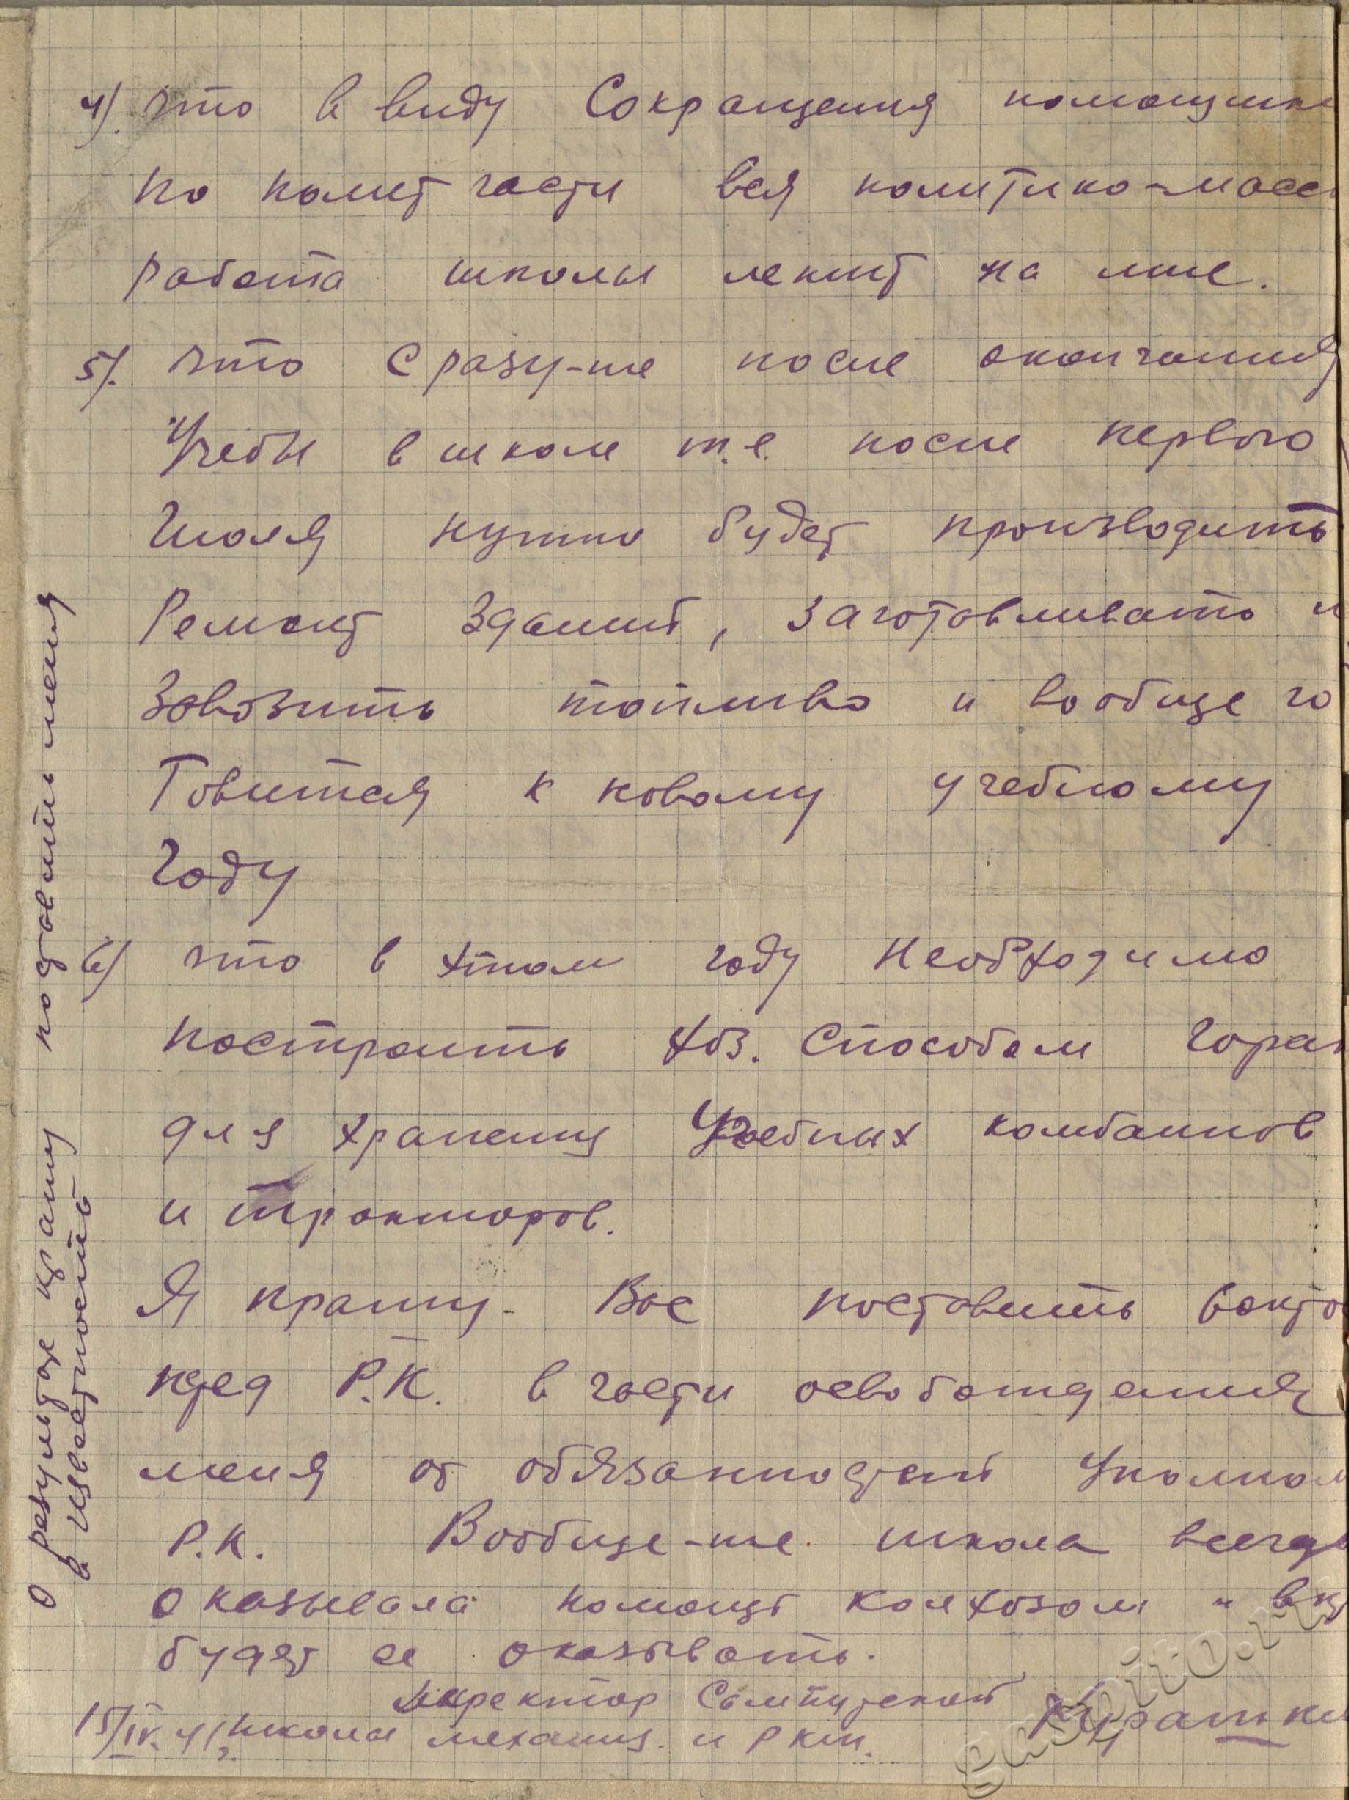 4). что в виду Сокращения помощника
по полит части вся политико-масс
работа школы лежит на мне.
5). что сразу-же после окончания
Учебы в школе т.е. после первого
Июля нужно будет производить
Ремонт зданий, заготавливать и
Завозить топливо и вообще го
товится к новому учебному
году
6) что в этом году необходимо
построить хоз. способом гараж
для хранения Учебных комбайнов
и тракторов.
Я прошу Вас поставить вопрос
пред Р.К. в части освобождения
меня от обязанностей Уполном
Р.К. Вообще-же школа всегда
оказывала помощь колхозам и
будет ее оказывать.
директор Сампурской
15/IV.41г. школы механиз. и РКШ.
О результах прошу поставить меня
в известность
gaspito.ru